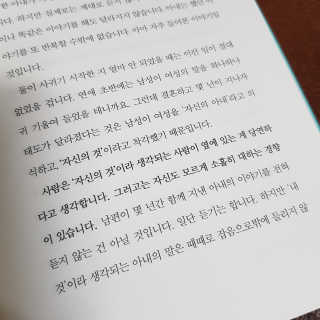 한 아내가
니다. 하지만 실제로는 제대로 듣지 않
이나 똑같은 이야기를 해도 달라지지 않습니다. 아내는 했던 이
야기를 또 반복할 수밖에 없습니다. 아마 자주 들어본 이야기일
것입니다.
둘이 사귀기 시작한 지 얼마 안 되었을 때는 이런 일이 절대
없었을 겁니다. 연애 초반에는 남성이 여성의 말을 하나하나
귀 기울여 들었을 테니까요. 그런데 결혼하고 몇 년이 지나자
태도가 달라졌다는 것은 남성이 여성을 ‘자신의 아내’라고 의
식하고, ‘자신의 것’이라고 착각했기 때문입니다.
사람은 ‘자신의 것’이라 생각되는 사람이 옆에 있는 게 당연하
다고 생각합니다. 그러고는 자신도 모르게 소홀히 대하는 경향
이 있습니다. 남편이 몇 년간 함께 지낸 아내의 이야기를 전혀
듣지 않는 건 아닐 것입니다. 일단 듣기는 합니다. 하지만 ‘내
것’이라 생각되는 아내의 말은 때때로 잡음으로밖에 들리지 않